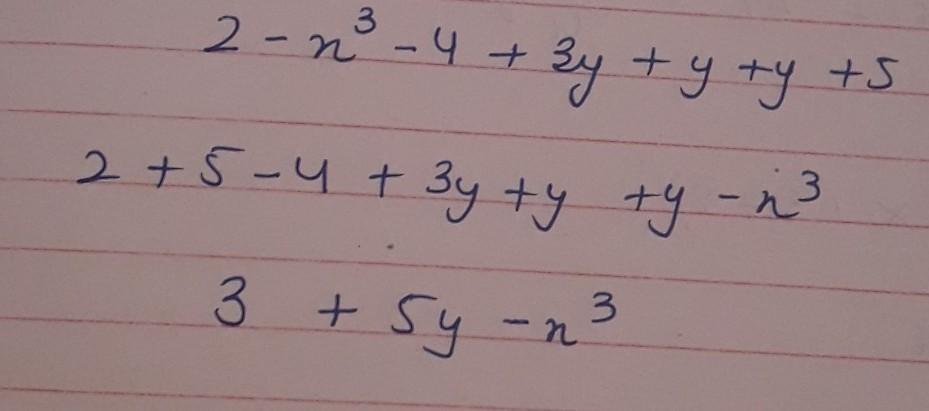 2 - x³ - 4 + 3y + y + y + 5
2 + 5 - 4 + 3y + y + y - x³
3 + 5y - x³